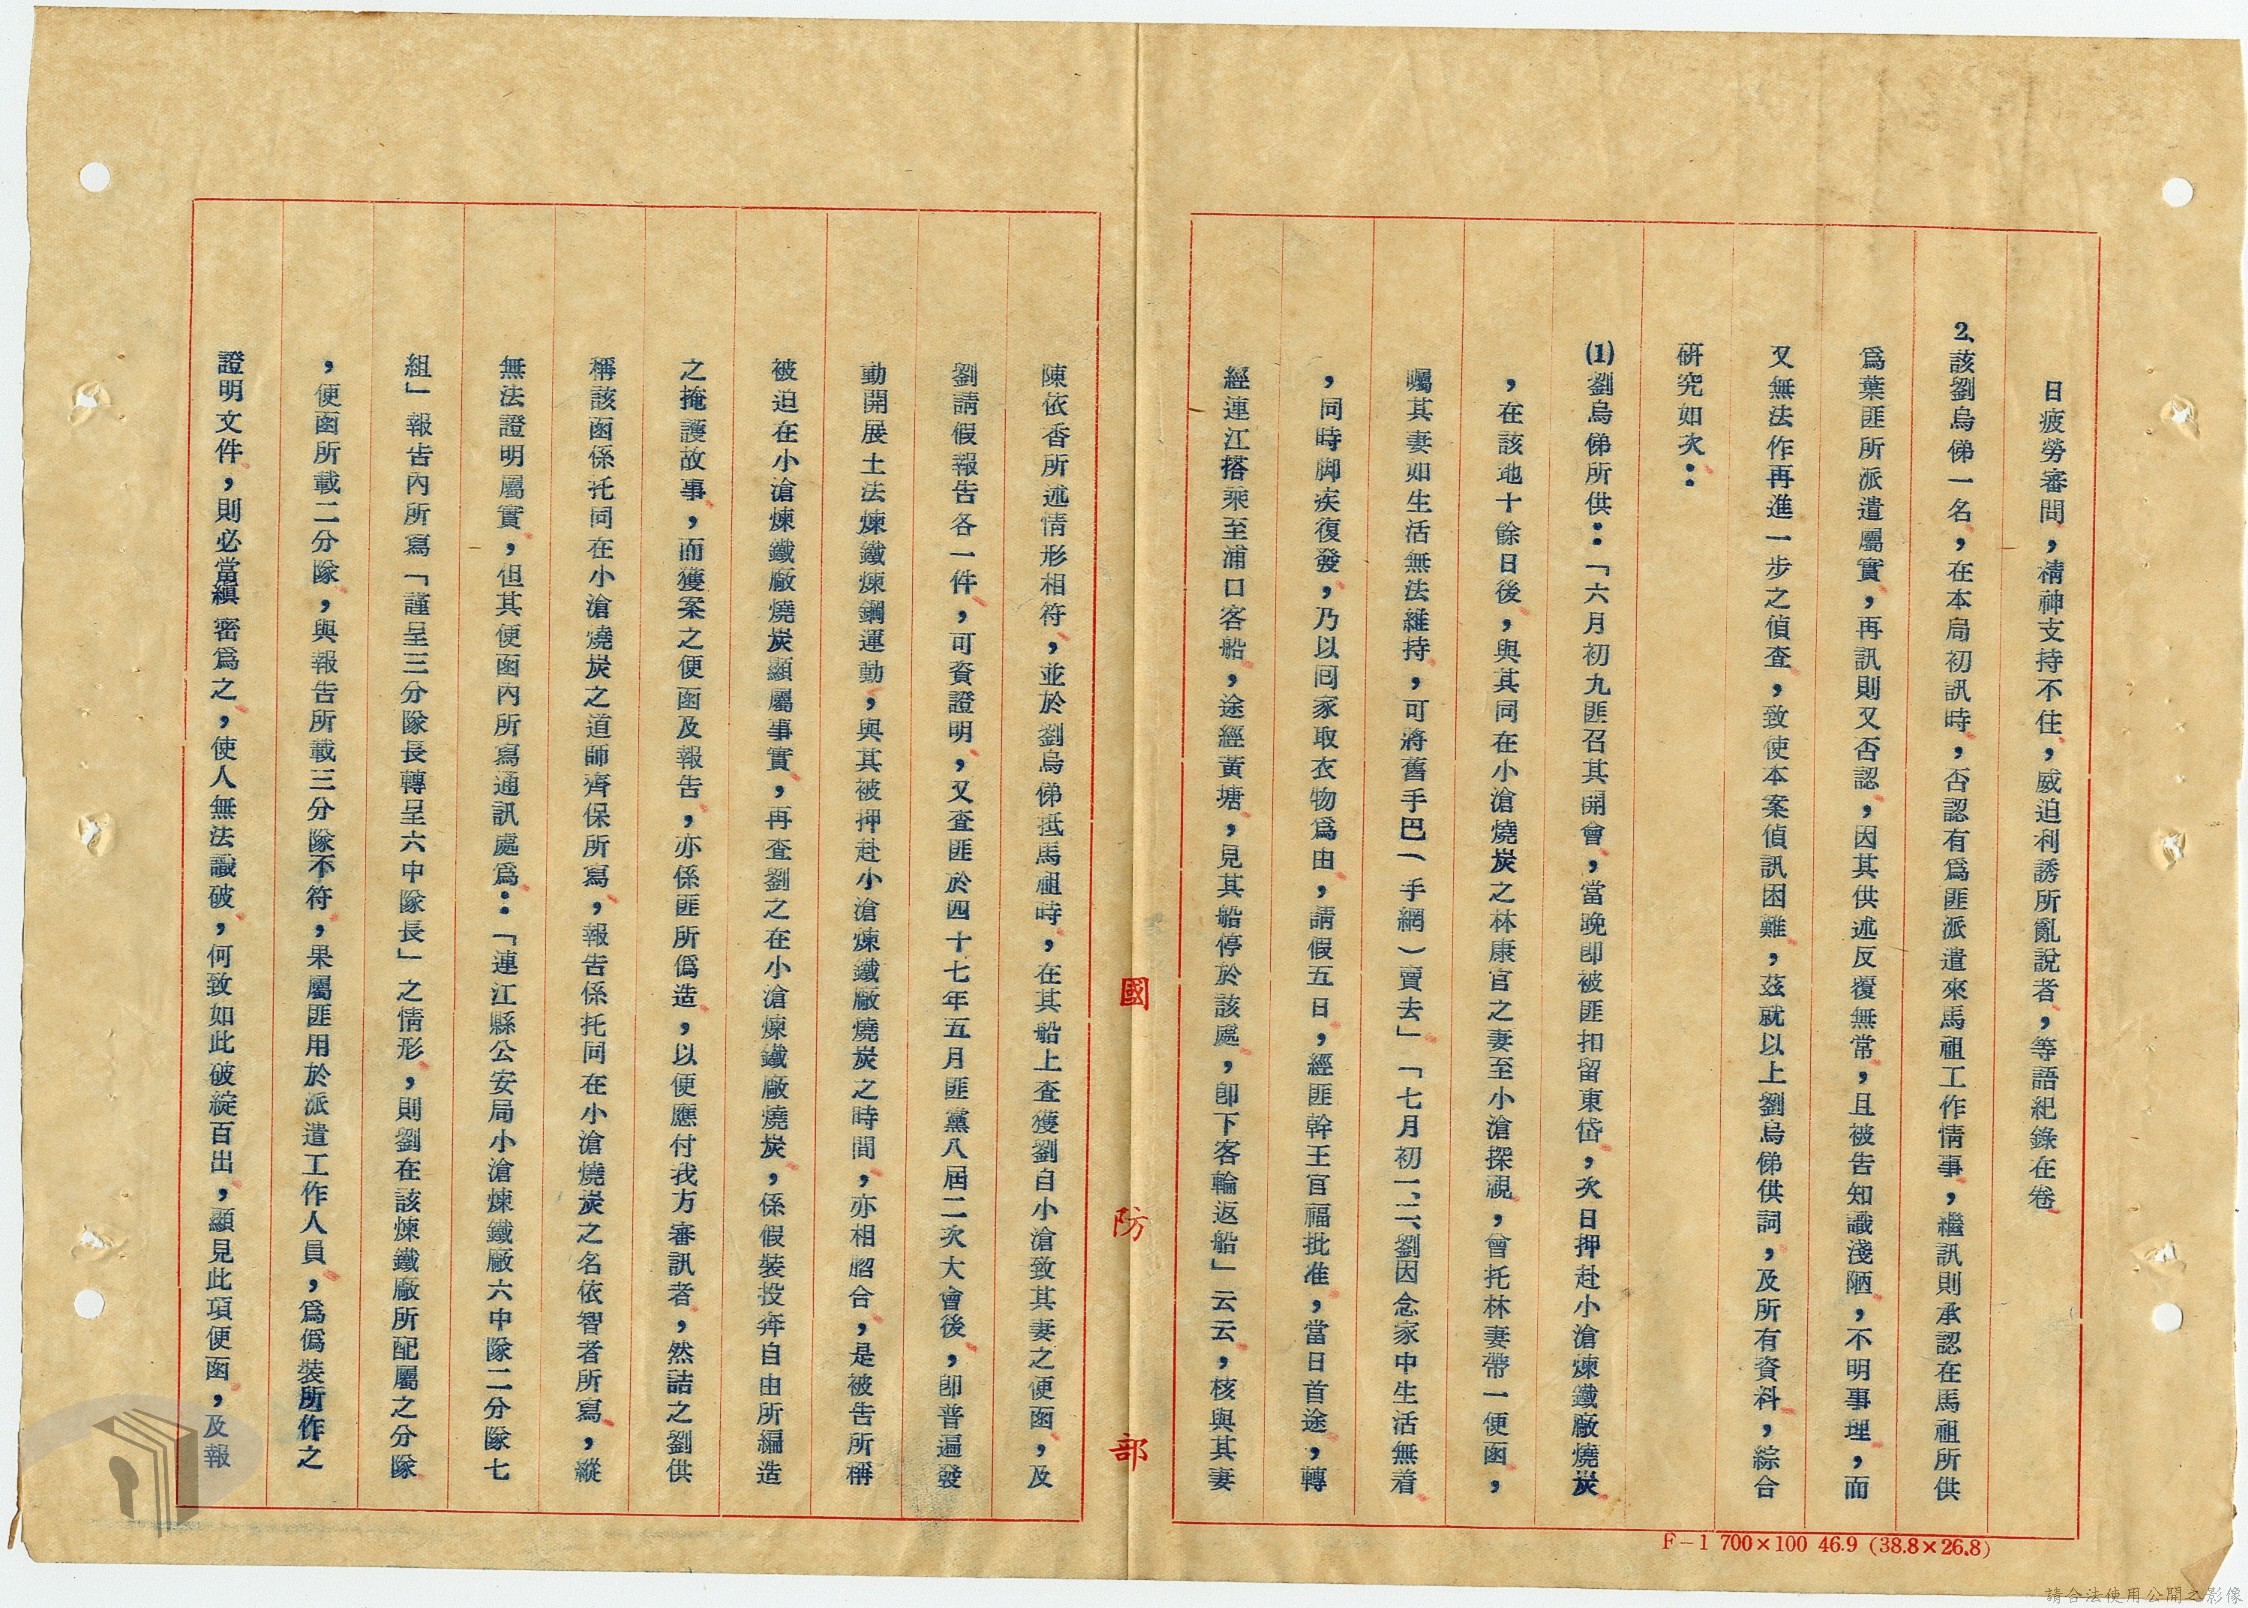 日疲勞審問，精神支持不住，威迫利誘所亂說者，等語紀錄在卷
2、該劉烏俤一名，在本局初訊時，否認有爲匪派遣來馬祖工作情事，繼訊則承認在馬祖所供
爲葉匪所派遣屬實，再訊則又否認，因其供述反覆無常，且被告知識淺陋，不明事理，而
又無法作再進一步之偵查，致使本案偵訊困難，茲就以上劉烏俤供詞，及所有資料，綜合
研究如次：
(1)劉烏俤所供：「六月初九匪召其開會，當晚卽被匪扣留東岱，次日押赴小滄煉鐵廠燒炭
，在該地十餘日後，與其同在小滄燒炭之林康官之妻至小滄探視，曾托林妻帶一便函，
囑其妻如生活無法維持，可將舊手巴（手網）賣去」「七月初一、二劉因念家中生活無着
，同時脚疾復發，乃以囘家取衣物爲由，請假五日，經匪幹王官福批准，當日首途，轉
經連江搭乘至浦口客船，途經黃塘，見其船停於該處，卽下客輪返船」云云，核與其妻
陳依香所述情形相符，並於劉烏俤抵馬祖時，在其船上查獲劉自小滄致其妻之便函，及
劉請假報告各一件，可資證明，又查匪於四十七年五月匪黨八屆二次大會後，卽普遍發
動開展土法煉鐵煉鋼運動，與其被押赴小滄煉鐵廠燒炭之時間，亦相脗合，是被告所稱
被迫在小滄煉鐵廠燒炭顯屬事實，再查劉之在小滄煉鐵廠燒炭，係假裝投奔自由所編造
之掩護故事，而獲案之便函及報告，亦係匪所僞造，以便應付我方審訊者，然詰之劉供
稱該函係托同在小滄燒炭之道師齊保所寫，報告係托同在小滄燒炭之名依智者所寫，縱
無法證明屬實，但其便函內所寫通訊處爲：「連江縣公安局小滄煉鐵廠六中隊二分隊七
組」報告內所寫「謹呈三分隊長轉呈六中隊長」之情形，則劉在該煉鐵廠所配屬之分隊
，便函所載二分隊，與報告所載三分隊不符，果屬匪用於派遣工作人員，爲僞裝所作之
證明文件，則必當縝密爲之，使人無法識破，何致如此破綻百出，顯見此項便函，及報
國防部
F-1 700×100 46.9 (38.8×26.8)
請合法使用公開之影像